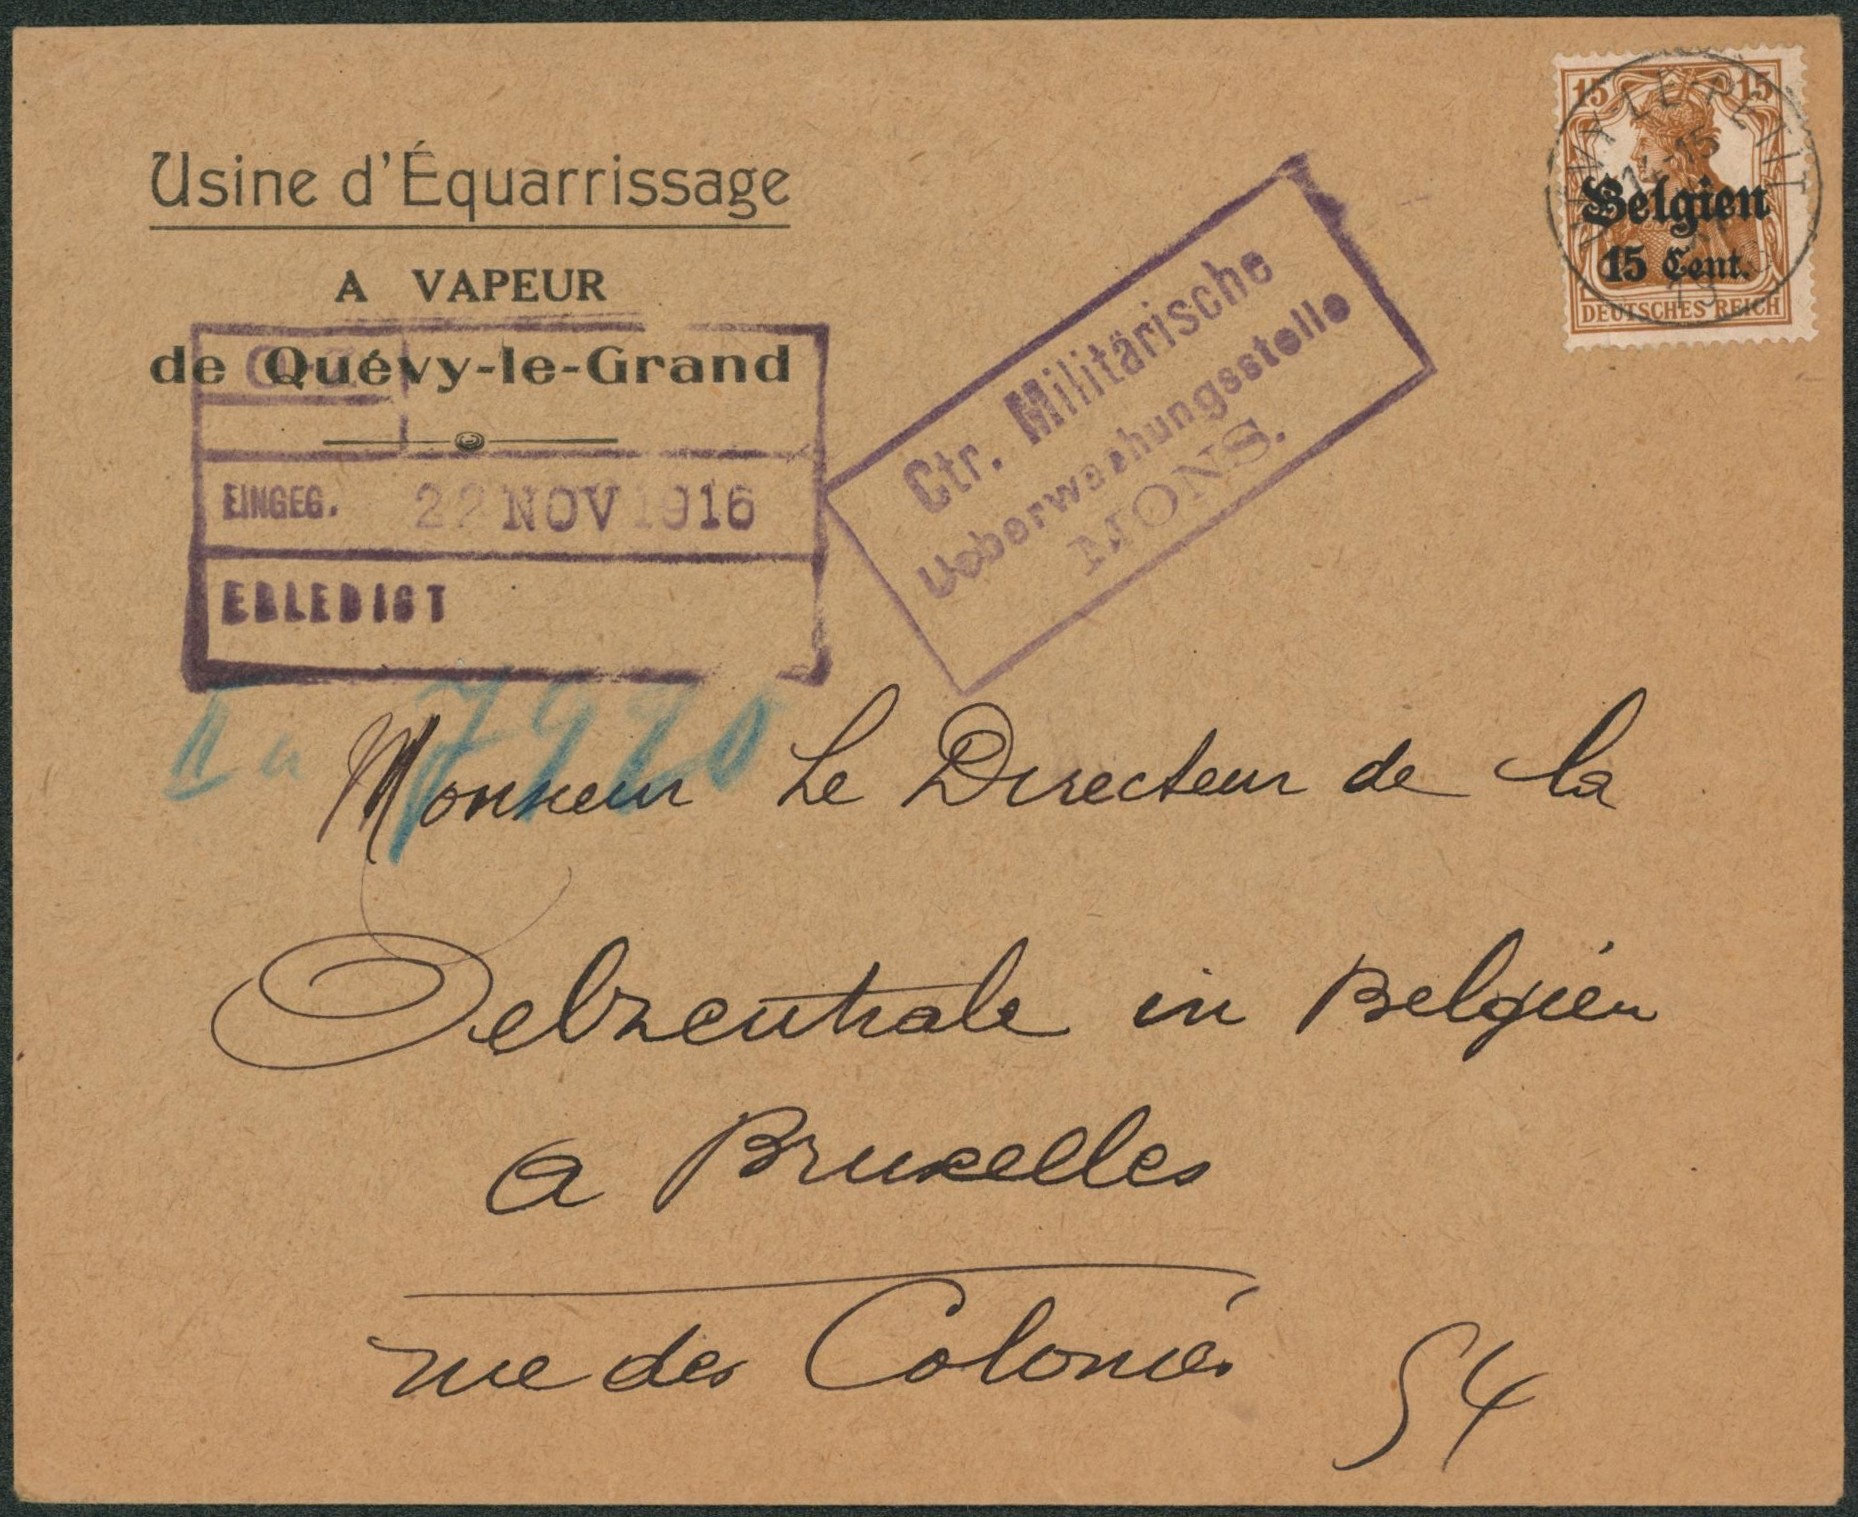 Usine d'Équarrissage
A VAPEUR
de Quévy-le-Grand
EINGEG. 22 NOV 1916
ERLEDIGT
Ctr. Militärische
Ueberwachungsstelle
MONS.
15 15
LE PETIT
14-15
Belgien
15 Cent.
DEUTSCHES REICH
7920
Monsieur Le Directeur de la
Oelzentrale in Belgien
a Bruxelles
rue des Colonies 54